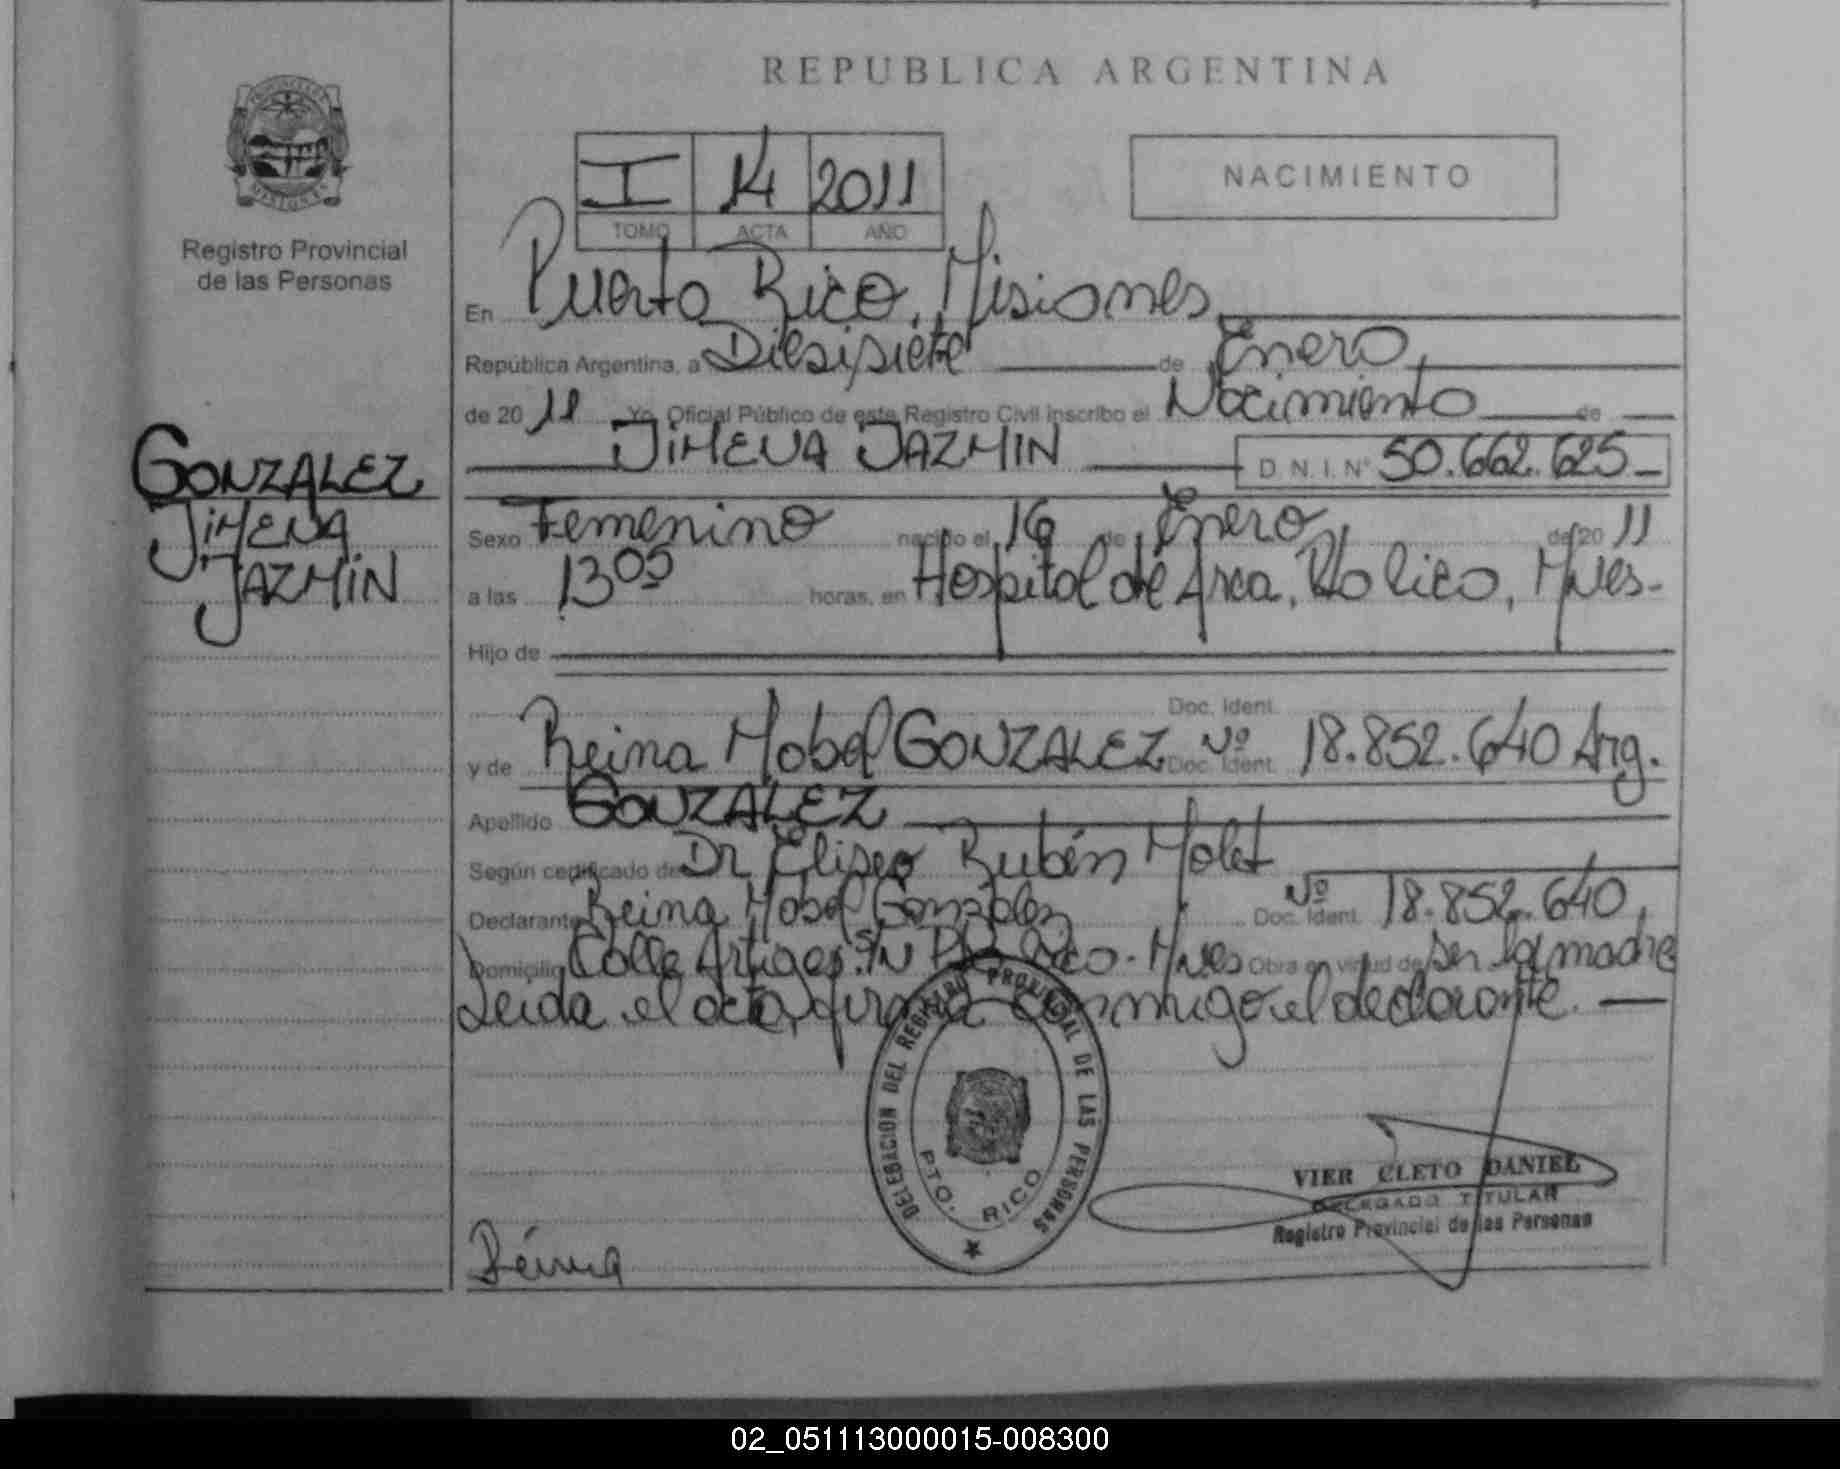 REPUBLICA ARGENTINA
NACIMIENTO
I 14 2011
TOMO ACTA AÑO
Registro Provincial
de las Personas
GONZALEZ
JIMENA
JAZMIN
En Puerto Rico, Misiones
República Argentina, a Diesisiete de Enero
de 2011 Yo Oficial Público de este Registro Civil inscribo el Nacimiento de
JIMENA JAZMIN D.N.I. N° 50.662.625
Sexo Femenino nacido el 16 de Enero de 2011
a las 13 05 horas, en Hospital de Area, Pto Rico, Mnes-
Hijo de
Doc. Ident.
y de Reina Mabel GONZALEZ Doc. Ident. Nº 18.852.640 Arg.
Apellido GONZALEZ
Según certificado de Dr Eliseo Rubén Molet
Declarante Reina Mabel Gonzalez Doc. Ident. Nº 18.852.640,
Domicilio Calle Artigas S/N Pto Rico - Mnes Obra en virtud de ser la madre
Leida el acta, firma conmigo el declarante.
DELEGACION DEL REGISTRO PROVINCIAL DE LAS PERSONAS
PTO. RICO
VIER CLETO DANIEL
DELEGADO TITULAR
Registro Provincial de las Personas
Réina
02_051113000015-008300